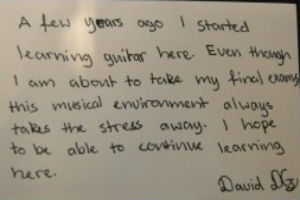 A few years ago I started
learning guitar here. Even though
I am about to take my final exams
this musical environment always
takes the stress away. I hope
to be able to continue learning
here.
David